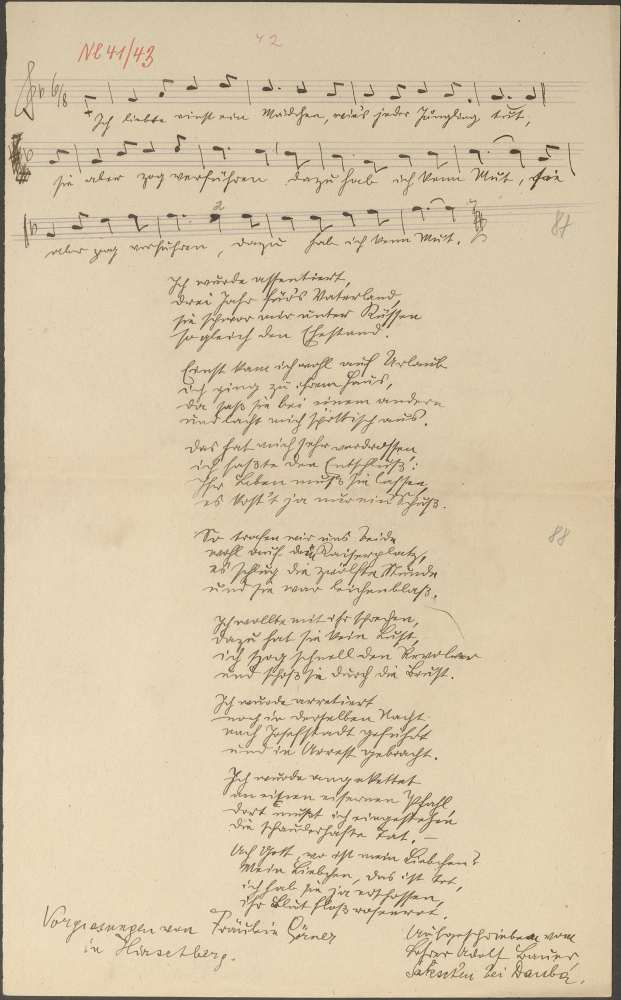 42
Nl 41/43
6/8
Ich liebte einst ein Mädchen, wie's jeder Jüngling tut,
sie aber zog verführen dazu hab ich kenn Mut, sie
a
87
aber zog verführen, dazu hab ich kenn Mut.
Ich wurde assentiert,
drei Jahr fürs Vaterland,
sie schwor mir unter Küssen
sogleich den Ehestand.
Ernst kam ich wohl auf Urlaub
ich ging zu ihrem Haus,
da saß sie bei einem andern
und lacht mich spöttisch aus.
Das hat mich sehr verdrossen
ich faßte den Entschluß:
Ihr Leben muß sie lassen
es kost't ja nur ein Schuß.
So trafen wir uns beide
wohl auf dem Kaiserplatz,
88
es schlug die zwölfte Stunde
und sie war leichenblaß.
Ich wollte mit ihr sprechen,
dazu hat sie kein Lust,
ich zog schnell den Revolver
und schoß sie durch die Brust.
Ich wurde arretiert
noch in derselben Nacht
nach Josefstadt geführt
und in Arrest gebracht.
Ich wurde angekettet
an einen eisernen Pfahl,
dort mußt ich eingestehen
die schauderhafte Tat. —
Ach Gott, wo ist mein Liebchen?
Mein Liebchen, das ist tot,
ich hab sie ja erschossen,
ihr Blut floß rosenrot.
Vorgesungen von Fräulein Görner
in Hirschberg.
Aufgeschrieben vom
Lehrer Adolf Bauer
bei Dauba.